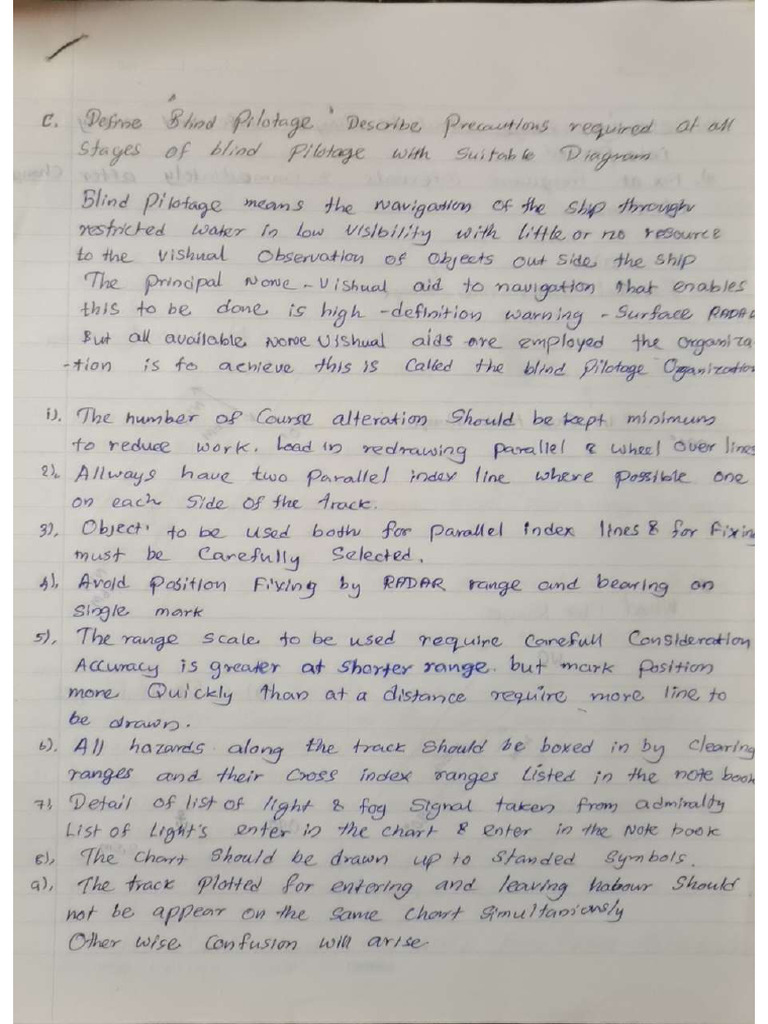 C. Define "Blind Pilotage" Describe Precautions required at all
Stages of blind Pilotage with Suitable Diagram
Blind Pilotage means the Navigation of the Ship through
restricted water in low visibility with little or no resource
to the vishual Observation of Objects out side the ship
The principal None-Vishual aid to navigation that enables
this to be done is high-definition warning - Surface RADAR
But all available None Vishual aids are employed the Organiza
-tion is to achieve this is Called the blind Pilotage Organization
1). The number of Course alteration Should be kept minimum
to reduce work. Load in redrawing parallel & wheel over lines
2). Allways have two Parallel index line where possible one
on each Side of the track.
3). Object' to be used both for parallel index lines & for fixing
must be Carefully Selected.
4). Avoid Position Fixing by RADAR range and bearing on
Single mark
5). The range scale to be used require Carefull Consideration
Accuracy is greater at shorter range. but mark Position
more Quickly than at a distance require more line to
be drawn.
6). All hazards along the track should be boxed in by clearing
ranges and their Cross index ranges Listed in the note book
7). Detail of list of light & fog Signal taken from admiralty
List of Light's enter in the chart & enter in the Note book
8). The Chart Should be drawn up to Standed Symbols.
9). The track Plotted for entering and leaving habour Should
not be appear on the Same Chart Simultaniously
Other wise Confusion will arise.